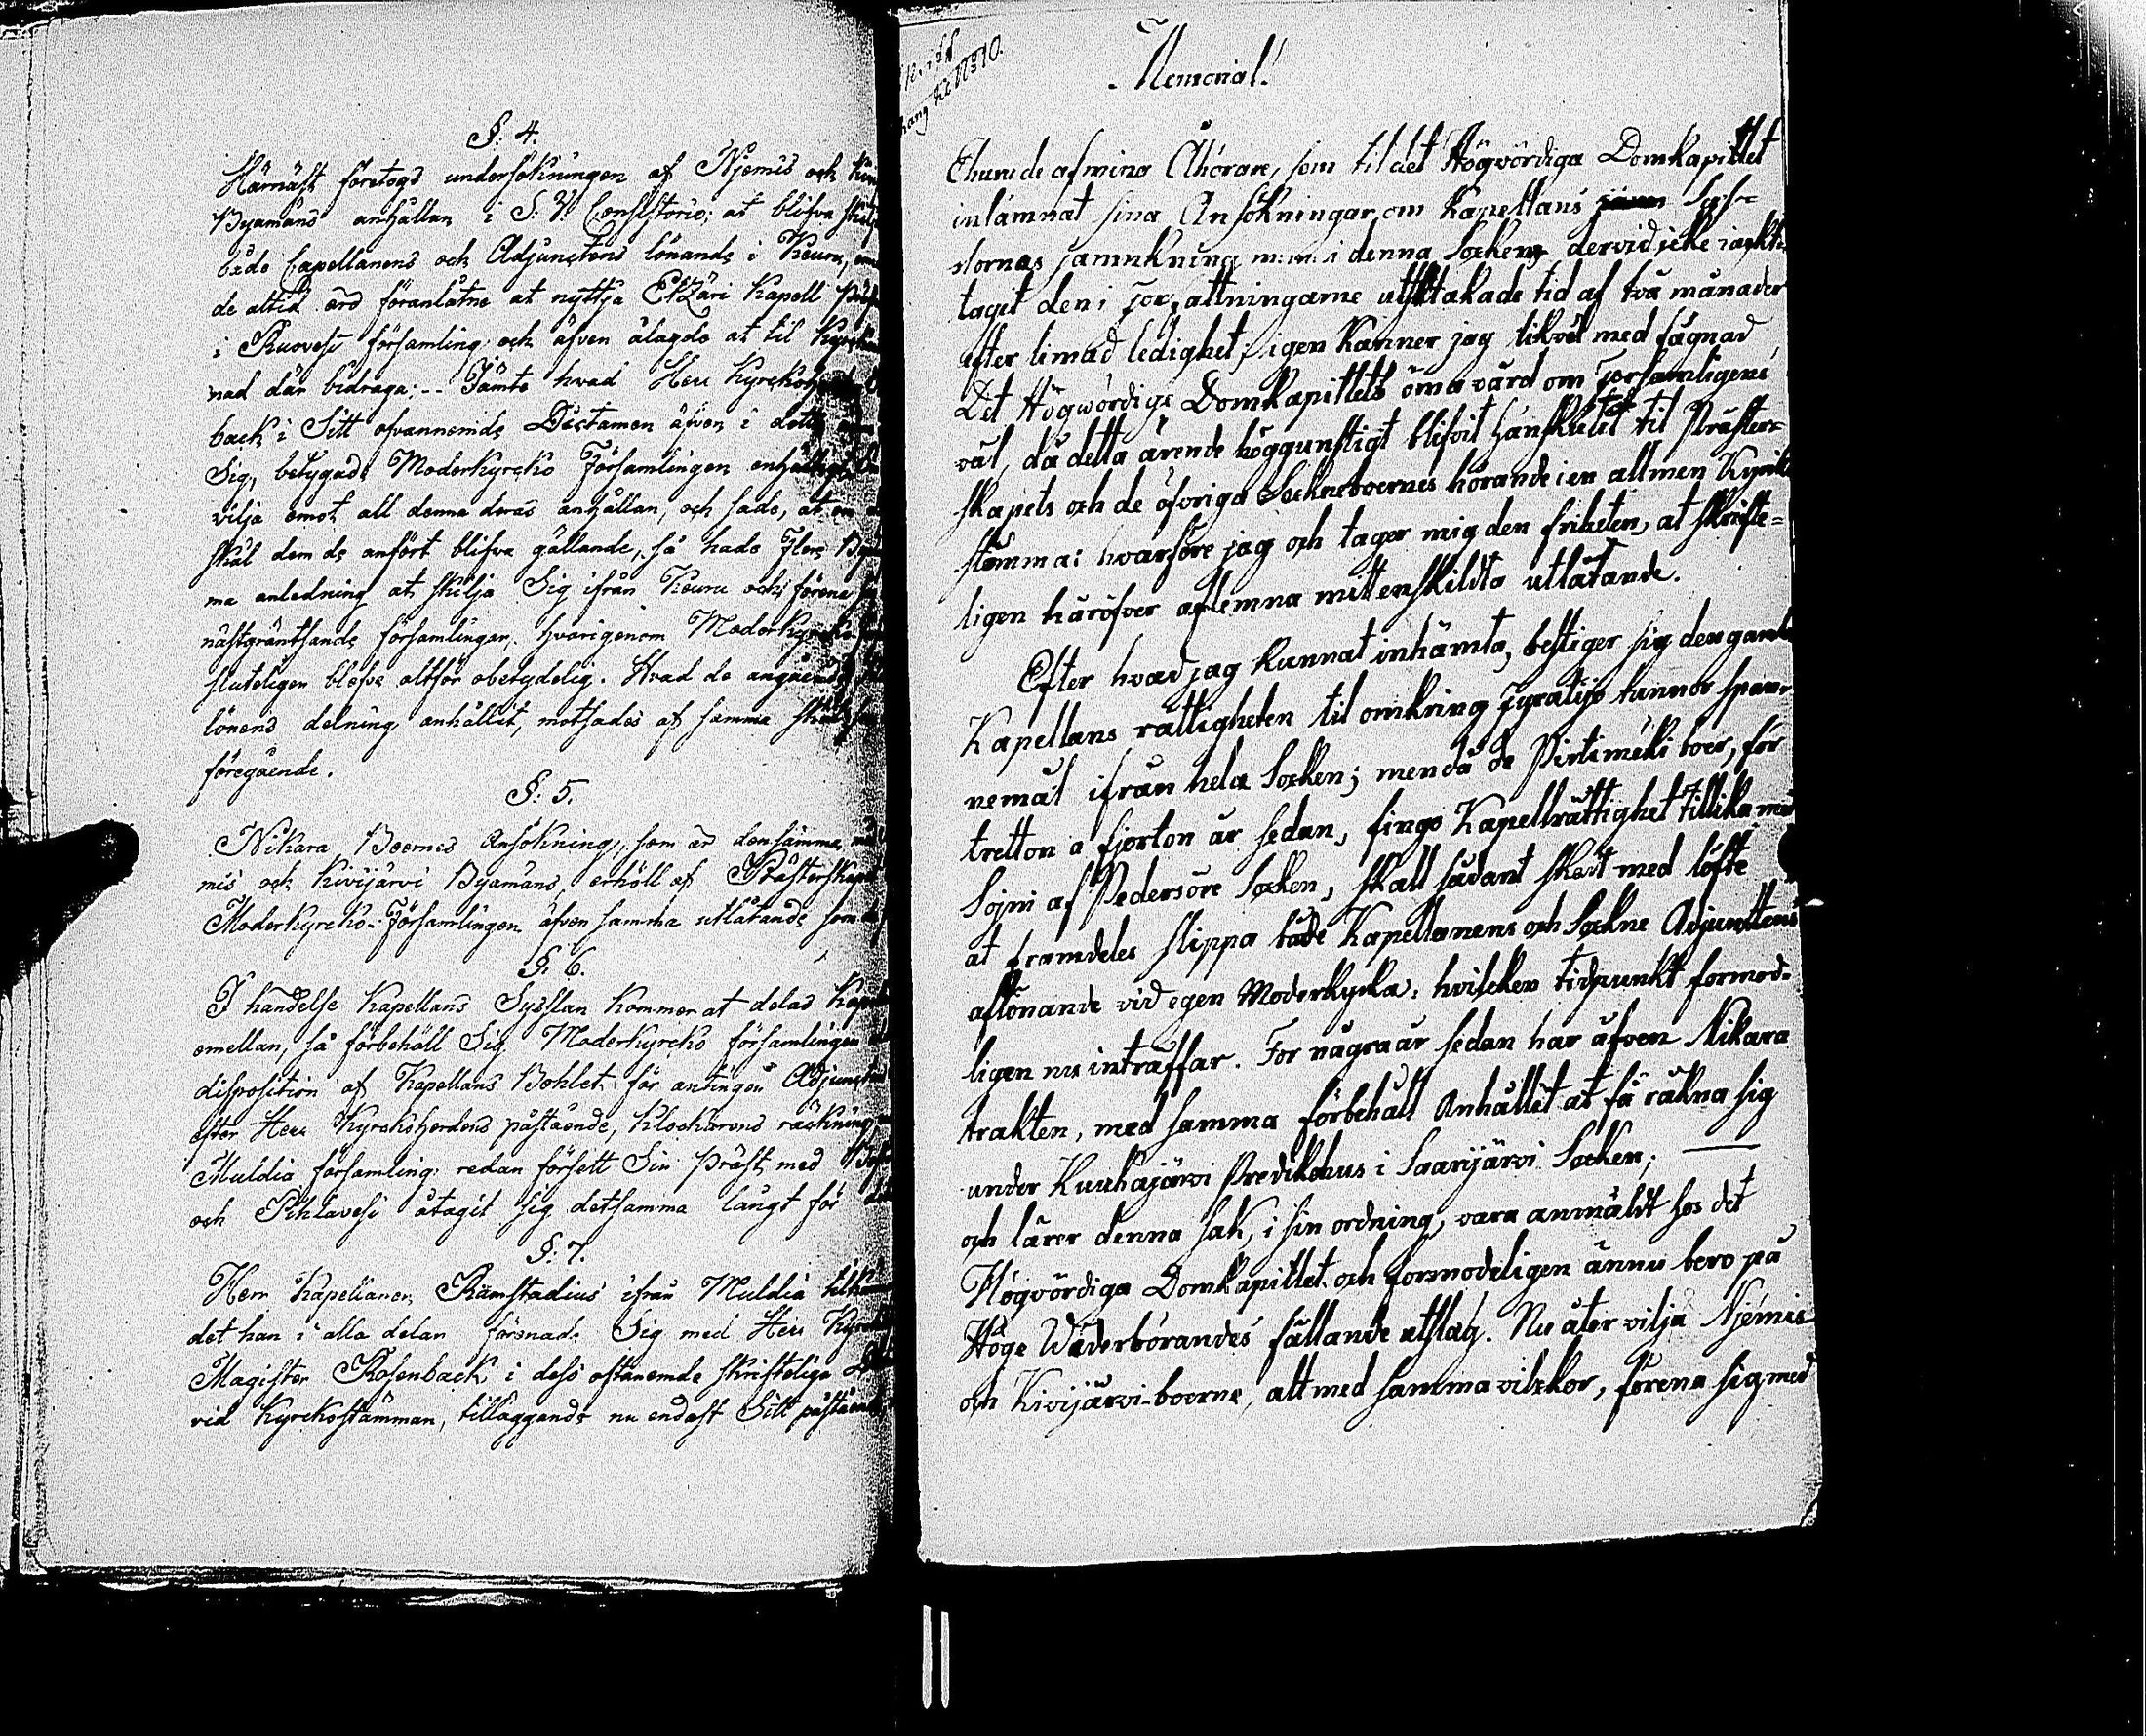 §: 4.
Härnäst företogs undersökningen af Njemis och
Byamäns anhållan i S: V. Consistorio: at blifva
både Capellanens och Adjunctens lönande i Keuru,
de altid ärd föranlåtne at nyttja Etzäri Kapell
i Ruovesi församling och äfven ålagde at til
nad där bidraga; -- Jämte hvad Herr
back i Sitt ofvannemde Dictamen äfven i detta
Sig, betygade Moderkyrcko Församlingen
vilja emot all denna deras anhållan, och sade, at om
skäl dem de anfört blifva gällande, så hade Flere
ma anledning at skilja Sig ifrån Keuru och förena
nästgräntsande församlingar, hvarigenom
sluteligen blefve altför obetydelig. Hvad de angående
lönens delning anhållit, motsades af samma
föregående.
§: 5.
Nikara Boernes Ansökning, som är densamma
mis och Kivijärvi Byamäns, erhöll af
Moderkyrcko-Församlingen äfven samma utlåtande som
§. 6.
I händelse Kapellans Sysslan kommer at delas
emellan, så förbehåll Sig Moderkyrcko församlingen
disposition af Kapellans Bohlet för antingen
efter Herr Kyrckoherdens påstående, klockarens räckning
Muldia församling redan försett Sin präst med
och Pihlavesi åtagit sig detsamma långt för
§: 7.
Herr Kapellanen Rämstadius ifrån Muldia
det han i alla delar förenade Sig med Herr
Magister Rosenback i dess oftanemde skrifteliga
vid Kyrckostämman, tilläggande nu endast Sitt
Memorial.
№ 10.
Ehuru de af mina Åhörare, som til det Högvördiga Domkapittlet
inlämnat sina Ansökningar om Kapellans Sys-
slornas jämnkning m: m: i denna Socken, dervid icke iackt-
tagit den i Författningarne utstakade tid af två månader
efter timad ledighet; igen känner jag likväl med fägnad
Det Högwördige Domkapittlets öma vård om Församligens
väl, då detta ärende höggunstigt blifvit hänskutet til Präster-
skapets och de öfvriga Sockneboernes hörande i en allmen
stämma: hvarföre jag och tager mig den friheten, at skrifte-
ligen häröfver aflemna mitt enskildta utlåtande.
Efter hvad jag kunnat inhämta, bestiger sig den gamla
Kapellans rättigheten til omkring Fyratijo tunnor span-
nemål ifrån hela Socken; men då de Pirtimäki boer, för
tretton a fjorton år sedan, fingo Kapellrättighet tillika med
Sojni af Pedersöre Socken, skall sådant skedt med löfte
at framdeles slippa både Kapellanens och Sockne Adjunctens
aflönande vid egen Moderkyrka: hvilcken tidpunkt förmod-
ligen nu inträffar. För några år sedan har äfven Nikara
trakten, med samma förbehåll Anhållit at få räkna sig
under Kuuhajärvi Predikohus i Saarijärvi Socken; —
och lärer denna sak, i sin ordning, vara anmäldt hos det
Högvördiga Domkapitlet och förmodeligen ännu bero på
Höge Wederbörandes fällande utslag. Nu åter vilja Njemis
och Kivijärvi-boerne, alt med samma vilckor, förena sig med